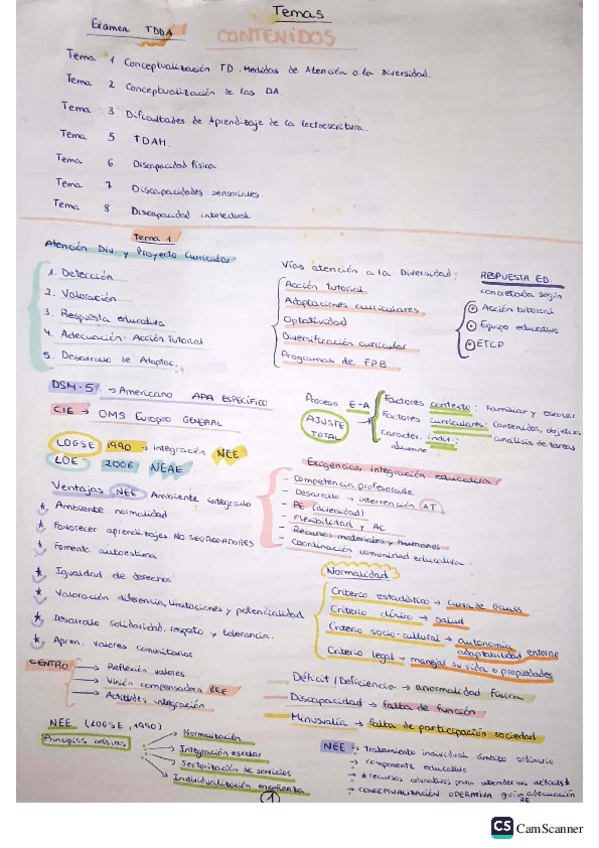 Temas
Examen TDDA
CONTENIDOS
Tema 1 Conceptualización TD. Medidas de Atención a la Diversidad.
Tema 2 Conceptualización de las DA.
Tema 3 Dificultades de Aprendizaje de la lectoescritura.
Tema 5 TDAH.
Tema 6 Discapacidad física.
Tema 7 Discapacidades sensoriales.
Tema 8 Discapacidad intelectual
Tema 1
Atención Div. y Proyecto Curricular
1. Detección
2. Valoración
3. Respuesta educativa
4. Adecuación Acción Tutorial
5. Desarrollo de Adaptac.
Vías atención a la Diversidad:
Acción tutorial
Adaptaciones curriculares
Optatividad
Diversificación curricular
Programas de FPB
RESPUESTA ED.
concretada según
Acción tutorial
Equipo educativo
ETCP
DSM-5 → Americano APA ESPECÍFICO
CIE → OMS Europeo GENERAL
LOGSE 1990 → integración NEE
LOE 2006 NEAE
Proceso E-A
AJUSTE TOTAL
Factores contexto: Familiar y escolar
Factores curriculares: Contenidos, objetivos,
análisis de tareas
caracter. indiv.:
alumno
Ventajas NEE Ambiente integrado
★ Ambiente normalidad
★ Favorecer aprendizajes NO SEGREGADORES
★ Fomento autoestima
★ Igualdad de derechos
★ Valoración diferencia, limitaciones y potencialidad
★ Desarrollo solidaridad, respeto y tolerancia.
★ Apren. valores comunitarios
Exigencias integración educativa
- Competencia profesorado
- Desarrollo → intervención AT
- PE (diversidad)
- Flexibilidad y AC
- Recursos materiales y humanos
- Coordinación comunidad educativa
Normalidad
Criterio estadístico → curva de Gauss
Criterio clínico → salud
Criterio socio-cultural → autonomía
adaptabilidad entorno
Criterio legal → manejar su vida o propiedades
CENTRO
→ Reflexión valores
→ Visión compensadora NEE
→ Actividades integración
- Déficit / Deficiencia → anormalidad física
- Discapacidad → falta de función
- Minusvalía → falta de participación sociedad
NEE (LOGSE, 1990)
Principios básicos
→ Normalización
→ Integración escolar
→ Sectorización de servicios
→ Individualización enseñanza
NEE → tratamiento individual ámbito ordinario
→ componente educativo
→ recursos educativos para atender
→ CONCEPTUALIZACIÓN OPERATIVA guía adecuación
1
CS CamScanner